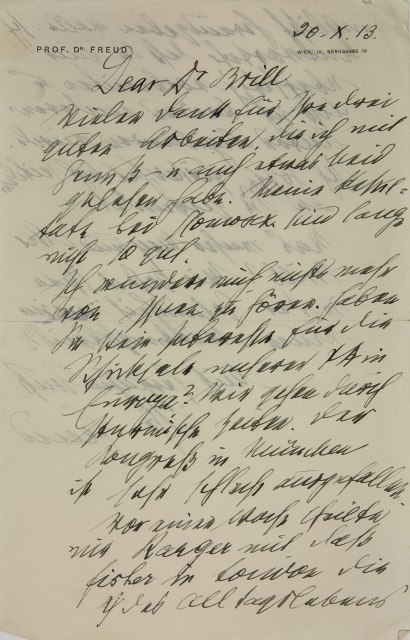 20. X. 13.
PROF. DR. FREUD
WIEN, IX. BERGGASSE 19
Dear Dr Brill
Vielen Dank für Ihre drei
guten Arbeiten, die ich mit
Genuß – u auch etwas Neid
gelesen habe. Meine Resul-
tate bei sind lange
nicht so gut.
Ich wundere mich nicht mehr
von Ihnen zu hören. Haben
Sie kein Interesse für die
Schicksale unserer ΨA in
Europa? Wir gehen durch
stürmische Zeiten. Der
Kongreß in München
ist sehr schlecht ausgefallen.
Vor einer Woche teilte
mir Karger mit, daß
Fisher in London die
des Alltagslebens